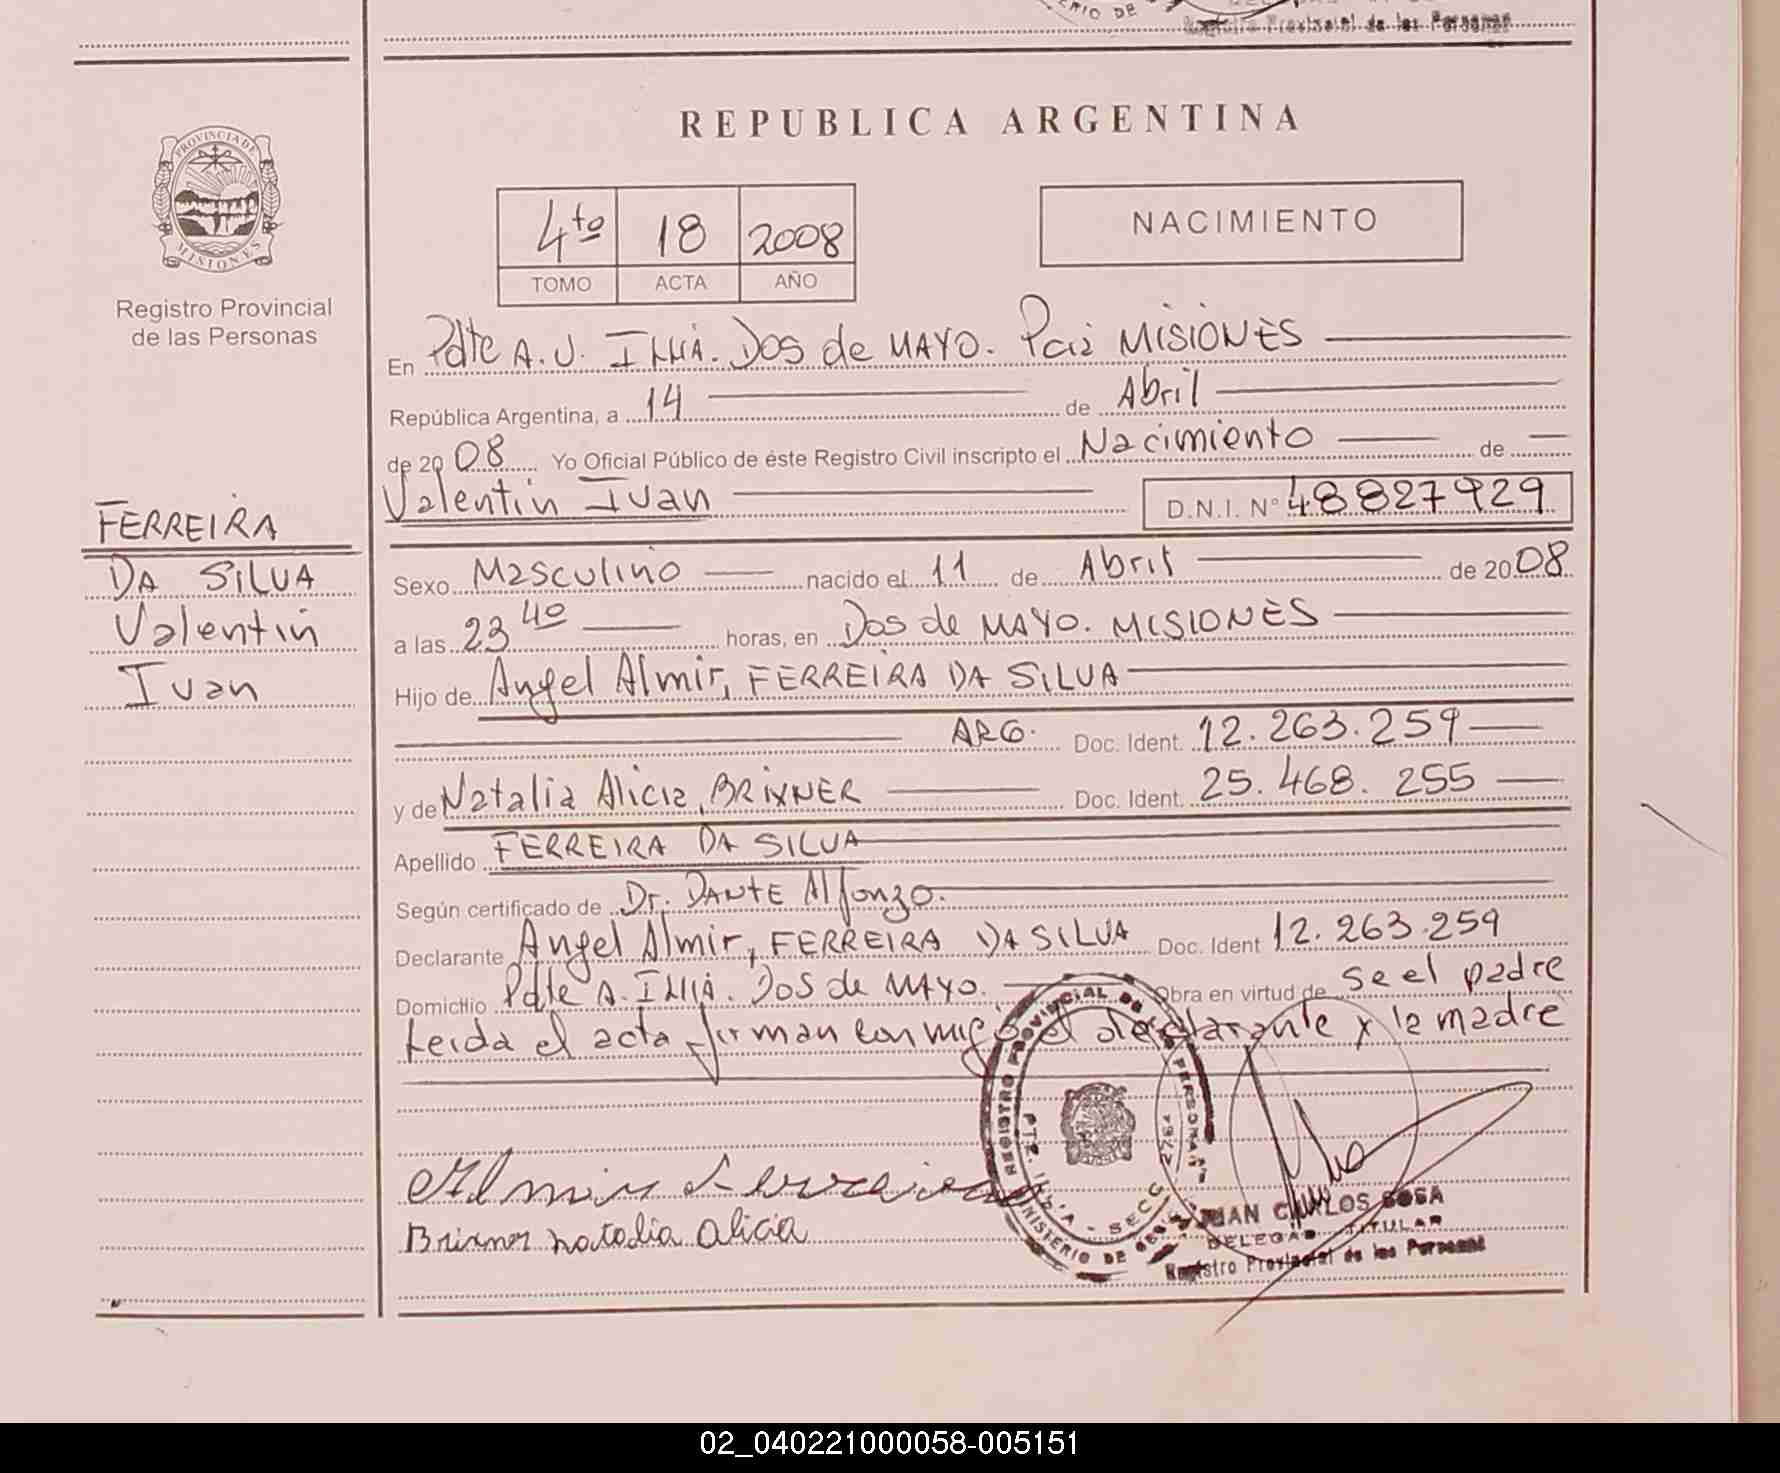 MINISTERIO DE
Registro Provincial de las Personas
PROVINCIA DE
MISIONES
Registro Provincial
de las Personas
REPUBLICA ARGENTINA
4to 18 2008
TOMO ACTA AÑO
NACIMIENTO
En Pdte A. U. ILLIA. Dos de MAYO. Pcia MISIONES
República Argentina, a 14 de Abril
de 2008 Yo Oficial Público de éste Registro Civil inscripto el Nacimiento de
Valentin Ivan D.N.I. N° 48827929
FERREIRA
DA SILVA
Valentin
Ivan
Sexo Masculino nacido el 11 de Abril de 2008
a las 23 40 horas, en Dos de MAYO. MISIONES
Hijo de Angel Almir, FERREIRA DA SILVA
ARG. Doc. Ident. 12.263.259
y de Natalia Alicia, BRIXNER Doc. Ident. 25.468.255
Apellido FERREIRA DA SILVA
Según certificado de Dr. DANTE Alfonzo.
Declarante Angel Almir, FERREIRA DA SILVA Doc. Ident 12.263.259
Domicilio Pdte A. ILLIA. Dos de MAYO. Obra en virtud de se el padre
Leida el acta firman conmigo el declarante y la madre
REGISTRO PROVINCIAL DE LAS PERSONAS
MINISTERIO DE
Almir Ferreira
Brixner natalia alicia
JUAN CARLOS SOSA
DELEGADO TITULAR
Registro Provincial de las Personas
02_040221000058-005151